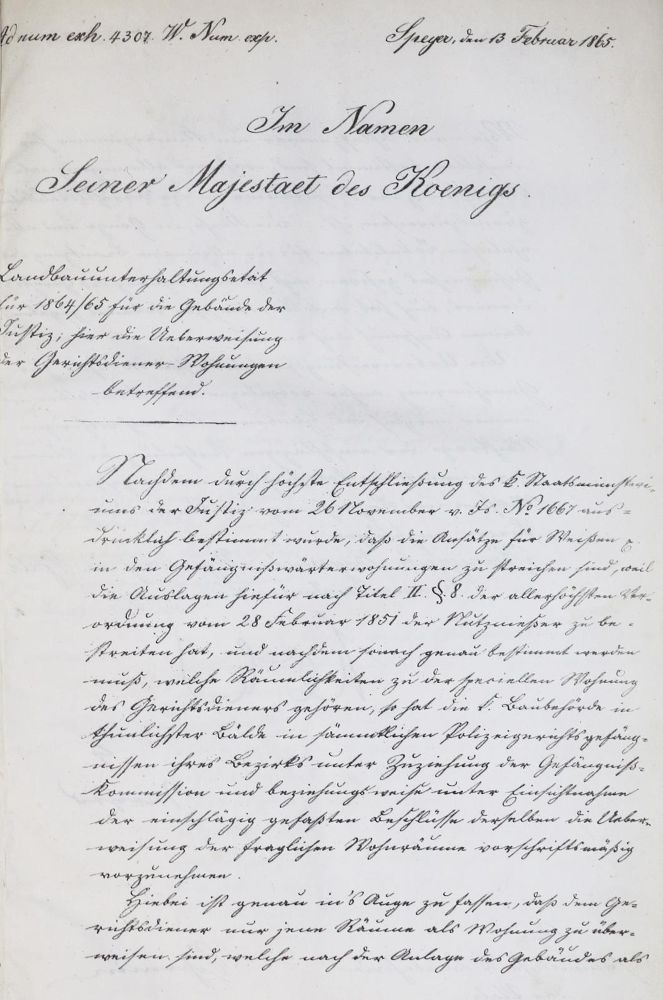 Ad num exh. 4307. W. Num. exp. Speyer, den 13 Februar 1865.
Im Namen
Seiner Majestaet des Koenigs.
Landbauunterhaltungsetat
für 1864/65 für die Gebäude der
Justiz; hier die Ueberweisung
der Gerichtsdiener-Wohnungen
betreffend.
Nachdem durch höchste Entschließung des k. Staatsministeri-
ums der Justiz vom 26 November v. Js. No 1667 aus-
drücklich bestimmt wurde, daß die Ansätze für Weißen
in den Gefängnißwärterwohnungen zu streichen sind, weil
die Auslagen hiefür nach Titel II. §. 8. der allerhöchsten Ver-
ordnung vom 28 Februar 1851 der Nutznießer zu be-
streiten hat, und nachdem sonach genau bestimmt werden
muß, welche Räumlichkeiten zu der speciellen Wohnung
des Gerichtsdieners gehören, so hat die k. Baubehörde in
thunlichster Bälde in sämmtlichen Polizeigerichtsgefäng-
nissen ihres Bezirks unter Zuziehung der Gefängniß-
kommission und beziehungsweise unter Einsichtnahme
der einschlägig gefaßten Beschlüsse derselben die Ueber-
weisung der fraglichen Wohnräume vorschriftsmäßig
vorzunehmen.
Hiebei ist genau in's Auge zu fassen, daß dem Ge-
richtsdiener nur jene Räume als Wohnung zu über-
weisen sind, welche nach der Anlage des Gebäudes als